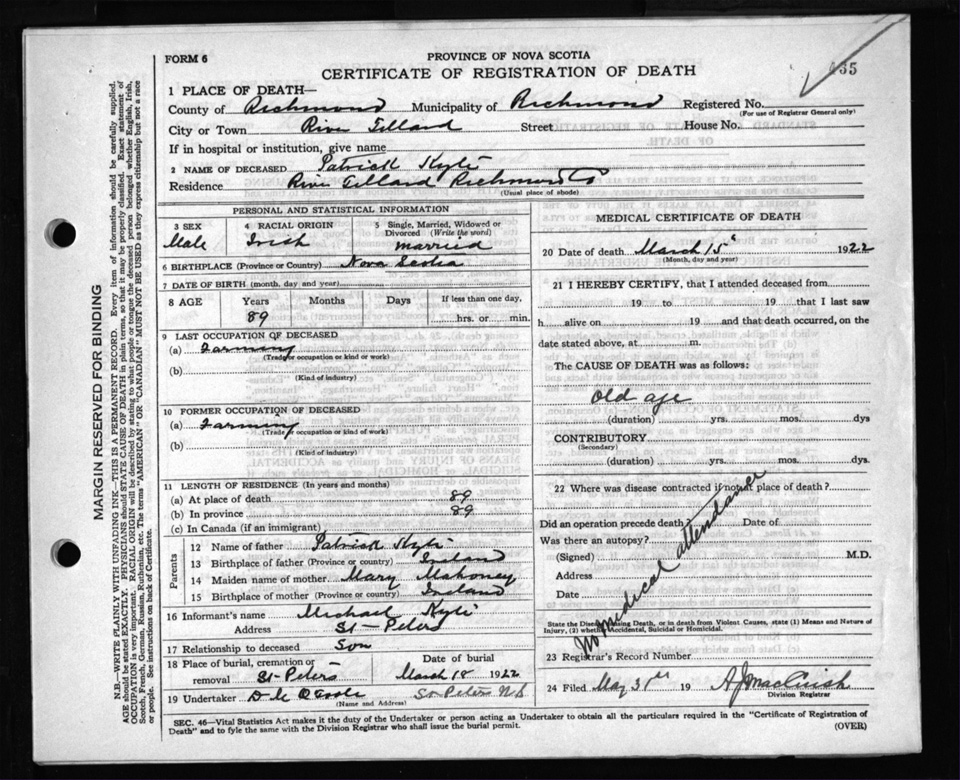 FORM 6
PROVINCE OF NOVA SCOTIA
CERTIFICATE OF REGISTRATION OF DEATH
1 PLACE OF DEATH—
County of Richmond Municipality of Richmond Registered No.
(For use of Registrar General only)
City or Town River Tilland Street House No.
If in hospital or institution, give name
2 NAME OF DECEASED Patrick Kyte
Residence River Tilland Richmond Co
(Usual place of abode)
PERSONAL AND STATISTICAL INFORMATION
3 SEX Male
4 RACIAL ORIGIN Irish
5 Single, Married, Widowed or Divorced (Write the word) married
6 BIRTHPLACE (Province or Country) Nova Scotia
7 DATE OF BIRTH (month, day and year)
8 AGE Years Months Days If less than one day,
89 hrs. or min.
9 LAST OCCUPATION OF DECEASED
(a) Farming
(Trade or occupation or kind or work)
(b)
(Kind of industry)
10 FORMER OCCUPATION OF DECEASED
(a) Farming
(Trade or occupation or kind of work)
(b)
(Kind of industry)
11 LENGTH OF RESIDENCE (In years and months)
(a) At place of death 89
(b) In province 89
(c) In Canada (if an immigrant)
Parents
12 Name of father Patrick Kyte
13 Birthplace of father (Province or country) Ireland
14 Maiden name of mother Mary Mahoney
15 Birthplace of mother (Province or country) Ireland
16 Informant's name Michael Kyte
Address St-Peters
17 Relationship to deceased Son
18 Place of burial, cremation or removal St-Peters
Date of burial March 18 1922
19 Undertaker St Peters N S
(Name and Address)
MEDICAL CERTIFICATE OF DEATH
20 Date of death March 15 1922
(Month, day and year)
21 I HEREBY CERTIFY, that I attended deceased from
19 to 19 that I last saw
h alive on 19 and that death occurred, on the
date stated above, at m.
The CAUSE OF DEATH was as follows:
Old age
(duration) yrs. mos. dys
CONTRIBUTORY
(Secondary)
(duration) yrs. mos. dys.
22 Where was disease contracted if not at place of death?
Did an operation precede death Date of
Was there an autopsy?
(Signed) M.D.
Address
Date
No medical attendance
State the Disease causing Death, or in death from Violent Causes, state (1) Means and Nature of
Injury, (2) whether Accidental, Suicidal or Homicidal.
23 Registrar's Record Number
24 Filed May 31st 19 A J MacCuish
Division Registrar
SEC. 46—Vital Statistics Act makes it the duty of the Undertaker or person acting as Undertaker to obtain all the particulars required in the "Certificate of Registration of
Death" and to fyle the same with the Division Registrar who shall issue the burial permit.
(OVER)
MARGIN RESERVED FOR BINDING
N.B.—WRITE PLAINLY WITH UNFADING INK—THIS IS A PERMANENT RECORD. Every item of information should be carefully supplied.
AGE should be stated EXACTLY. PHYSICIANS should STATE CAUSE OF DEATH in plain terms, so that it may be properly classified. Exact statement of
OCCUPATION is very important. RACIAL ORIGIN will be described by stating to what people or tongue the deceased person belonged whether English, Irish,
Scotch, French, German, Russian, Ruthenian, etc. The terms "AMERICAN" OR "CANADIAN" MUST NOT BE USED as they express citizenship but not a race
or people. See instructions on back of Certificate.